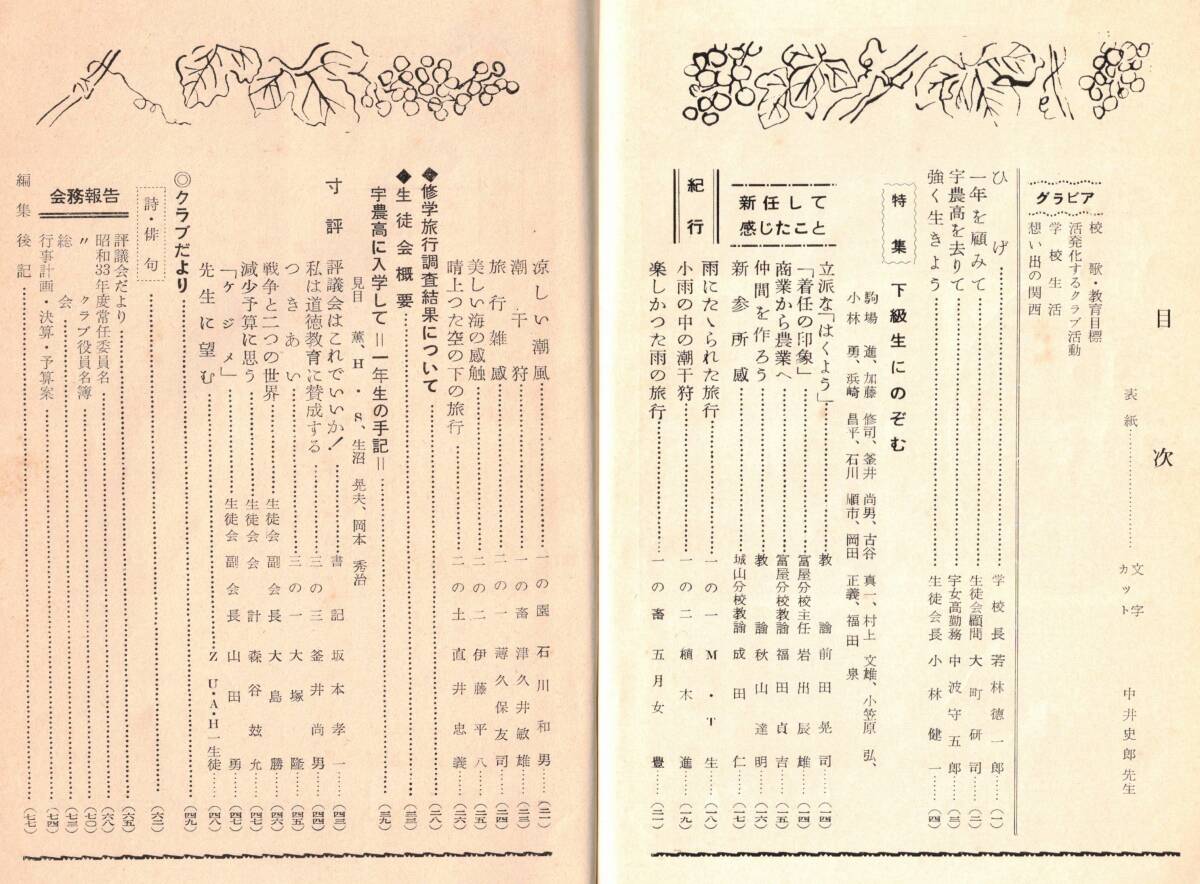 目次
表紙…………文字 カット 中井史郎先生
グラビア
校歌・教育目標
活発化するクラブ活動
学校生活
想い出の関西
ひげ…………学校長 若林徳一郎…(一)
一年を顧みて…………生徒会顧問 大町研司…(二)
宇農高を去りて…………宇女高勤務 中波守五郎…(三)
強く生きよう…………生徒会長 小林健一…(四)
特集 下級生にのぞむ
駒場 進、加藤 修司、釜井 尚男、古谷 真一、村上 文雄、小笠原 弘、
小林 勇、浜崎 昌平、石川 順市、岡田 正義、福田 泉
新任して感じたこと
立派な「はくよう」…………教諭 前田晃司…(四)
「着任の印象」…………富屋分校主任 岩出辰雄…(四)
商業から農業へ…………富屋分校教諭 福田貞吉…(四)
仲間を作ろう…………教諭 秋山達明…(一六)
新参所感…………城山分校教諭 成田仁…(一七)
紀行
雨にたゝられた旅行…………一の一 M・T生…(一八)
小雨の中の潮干狩…………一の二 植木進…(一九)
楽しかつた雨の旅行…………一の畜 五月女豊…(二一)
涼しい潮風…………一の園 石川和男…(二一)
潮干狩…………一の畜 津久井敏雄…(二三)
旅行雑感…………二の一 薄久保友司…(二四)
美しい海の感触…………二の二 伊藤平八…(二五)
晴上つた空の下の旅行…………二の土 直井忠義…(二六)
◆修学旅行調査結果について…………(二八)
◆生徒会概要…………(三三)
宇農高に入学して＝一年生の手記＝…………(三九)
見目 薫、H・S、生沼 晃夫、岡本 秀治
寸評
評議会はこれでいいか！…………書記 坂本孝一…(四三)
私は道徳教育に賛成する…………三の三 釜井尚男…(四四)
つきあい…………三の一 大塚隆…(四五)
戦争と二つの世界…………生徒会副会長 大島勝…(四六)
減少予算に思う…………生徒会会計 森谷玅允…(四七)
「ケジメ」…………生徒会副会長 山田勇…(四七)
先生に望む…………Z U・A・H 一生徒…(四八)
◎クラブだより…………(四九)
詩・俳句…………(六二)
会務報告
評議会だより…………(六五)
昭和33年度常任委員名…………(六八)
〃 クラブ役員名簿…………(七〇)
総会…………(七三)
行事計画・決算・予算案…………(七四)
編集後記…………(七七)